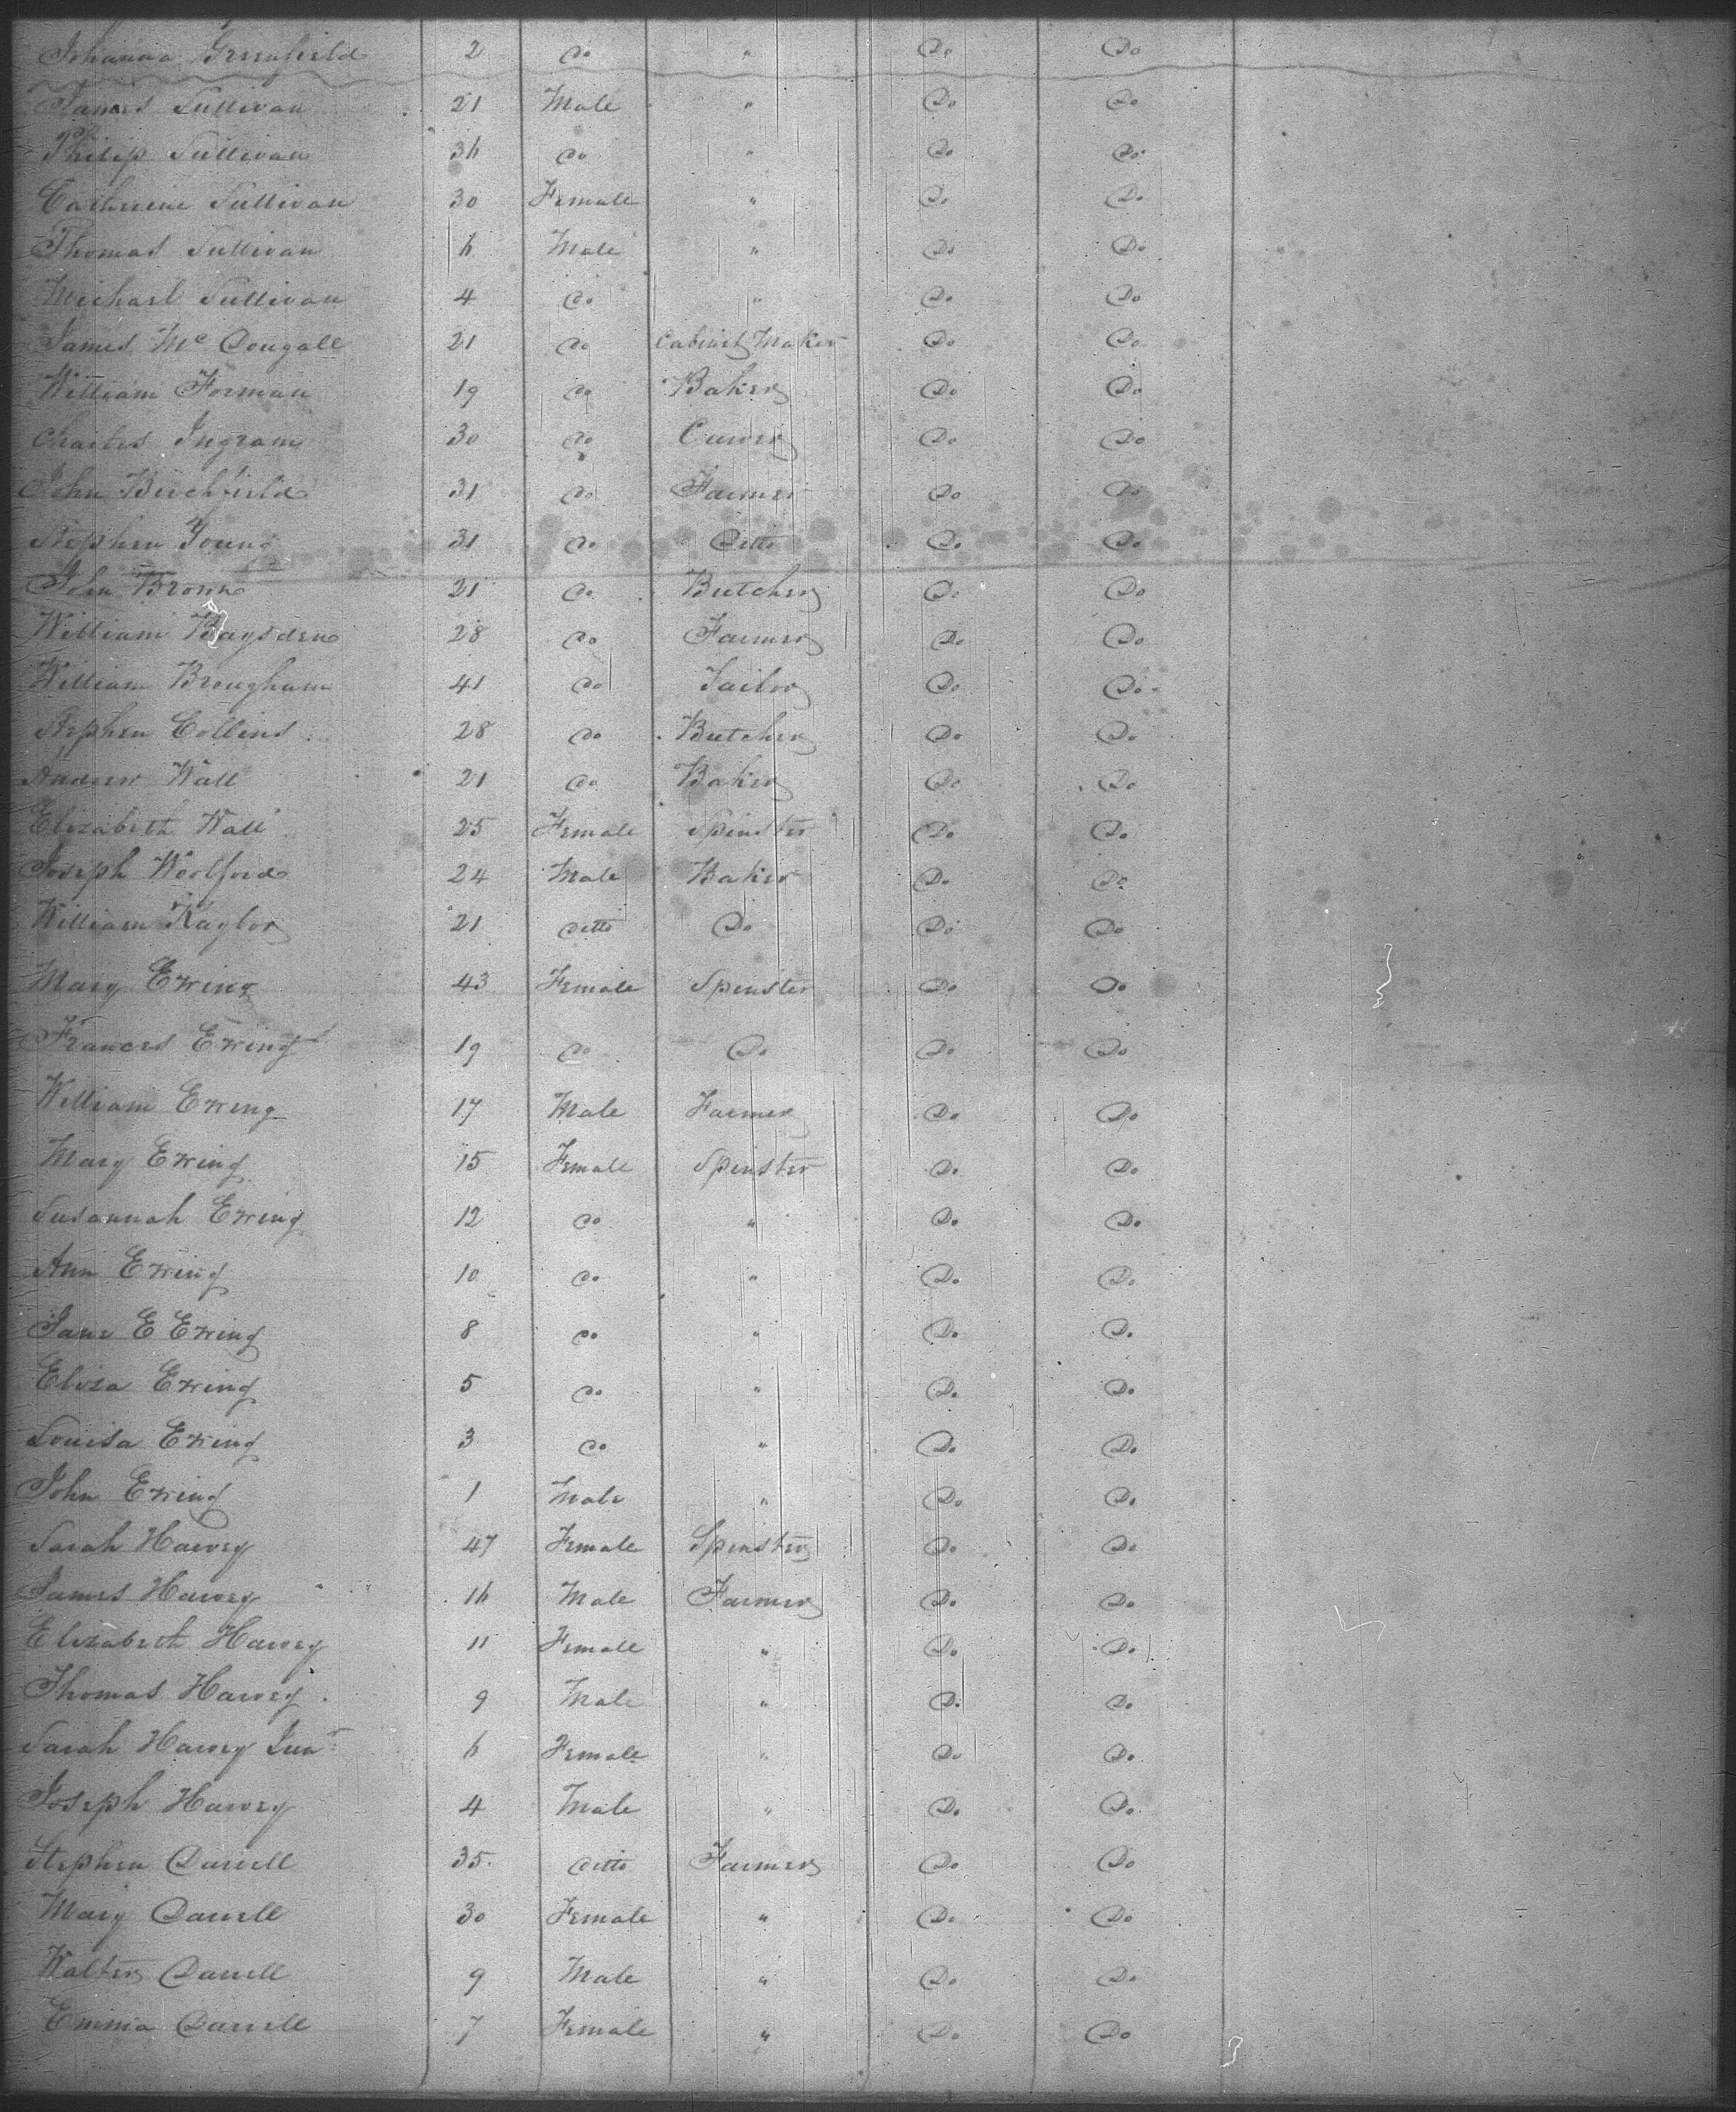 Johanna Greenfield 2 do " Do Do
James Sullivan 21 Male " Do Do
Philip Sullivan 36 do " Do Do
Catherine Sullivan 30 Female " Do Do
Thomas Sullivan 6 Male " Do Do
Michael Sullivan 4 do " Do Do
James Mc Dougall 21 do Cabinet Maker Do Do
William Forman 19 do Baker Do Do
Charles Ingram 30 do Do Do
John Birchfield 31 do Farmer Do Do
Stephen Young 31 do Ditto Do Do
John Brown 21 do Butcher Do Do
William Baysden 28 do Farmer Do Do
William Brougham 41 do Tailor Do Do
Stephen Collins 28 do Butcher Do Do
Andrew Wall 21 do Baker Do Do
Elizabeth Wall 25 Female Spinster Do Do
Joseph Woolford 24 Male Baker Do Do
William 21 ditto Do Do Do
Mary Ewing 43 Female Spinster Do Do
Frances Ewing 19 do Do Do Do
William Ewing 17 Male Farmer Do Do
Mary Ewing 15 Female Spinster Do Do
Susannah Ewing 12 do " Do Do
Ann Ewing 10 do " Do Do
Jane E Ewing 8 do " Do Do
Eliza Ewing 5 do " Do Do
Louisa Ewing 3 do " Do Do
John Ewing 1 Male " Do Do
Sarah Harvey 47 Female Spinster Do Do
James Harvey 16 Male Farmer Do Do
Elizabeth Harvey 11 Female " Do Do
Thomas Harvey 9 Male " Do Do
Sarah Harvey Junr 6 Female " Do Do
Joseph Harvey 4 Male " Do Do
Stephen Darrell 35 ditto Farmer Do Do
Mary Darrell 30 Female " Do Do
Walter Darrell 9 Male " Do Do
Emma Darrell 7 Female " Do Do